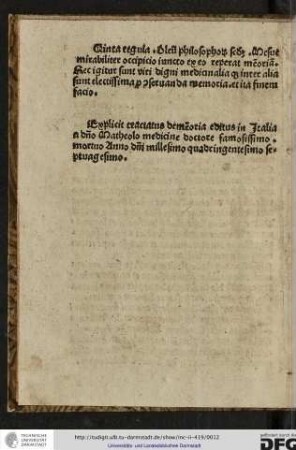 Quinta regula. Oleū philosophoꝝ scdꝫ. Mesue
mirabiliter occipicio iuncto ex eo reperat mēoriā.
Hec igitur sunt viri digni medicinalia qꝫ inter alia
sunt electissima ꝓ ɔseruanda memoria. et ita finem
facio.
Explicit tractatus de mēoria editus in Italia
a dño Matheolo medicine doctore famosissimo.
mortuo Anno dñi millesimo quadringentesimo se-
ptuagesimo.
TECHNISCHE
UNIVERSITÄT
DARMSTADT
http://tudigit.ulb.tu-darmstadt.de/show/inc-ii-419/0012
Universitäts- und Landesbibliothek Darmstadt
gefördert durch die
DFG